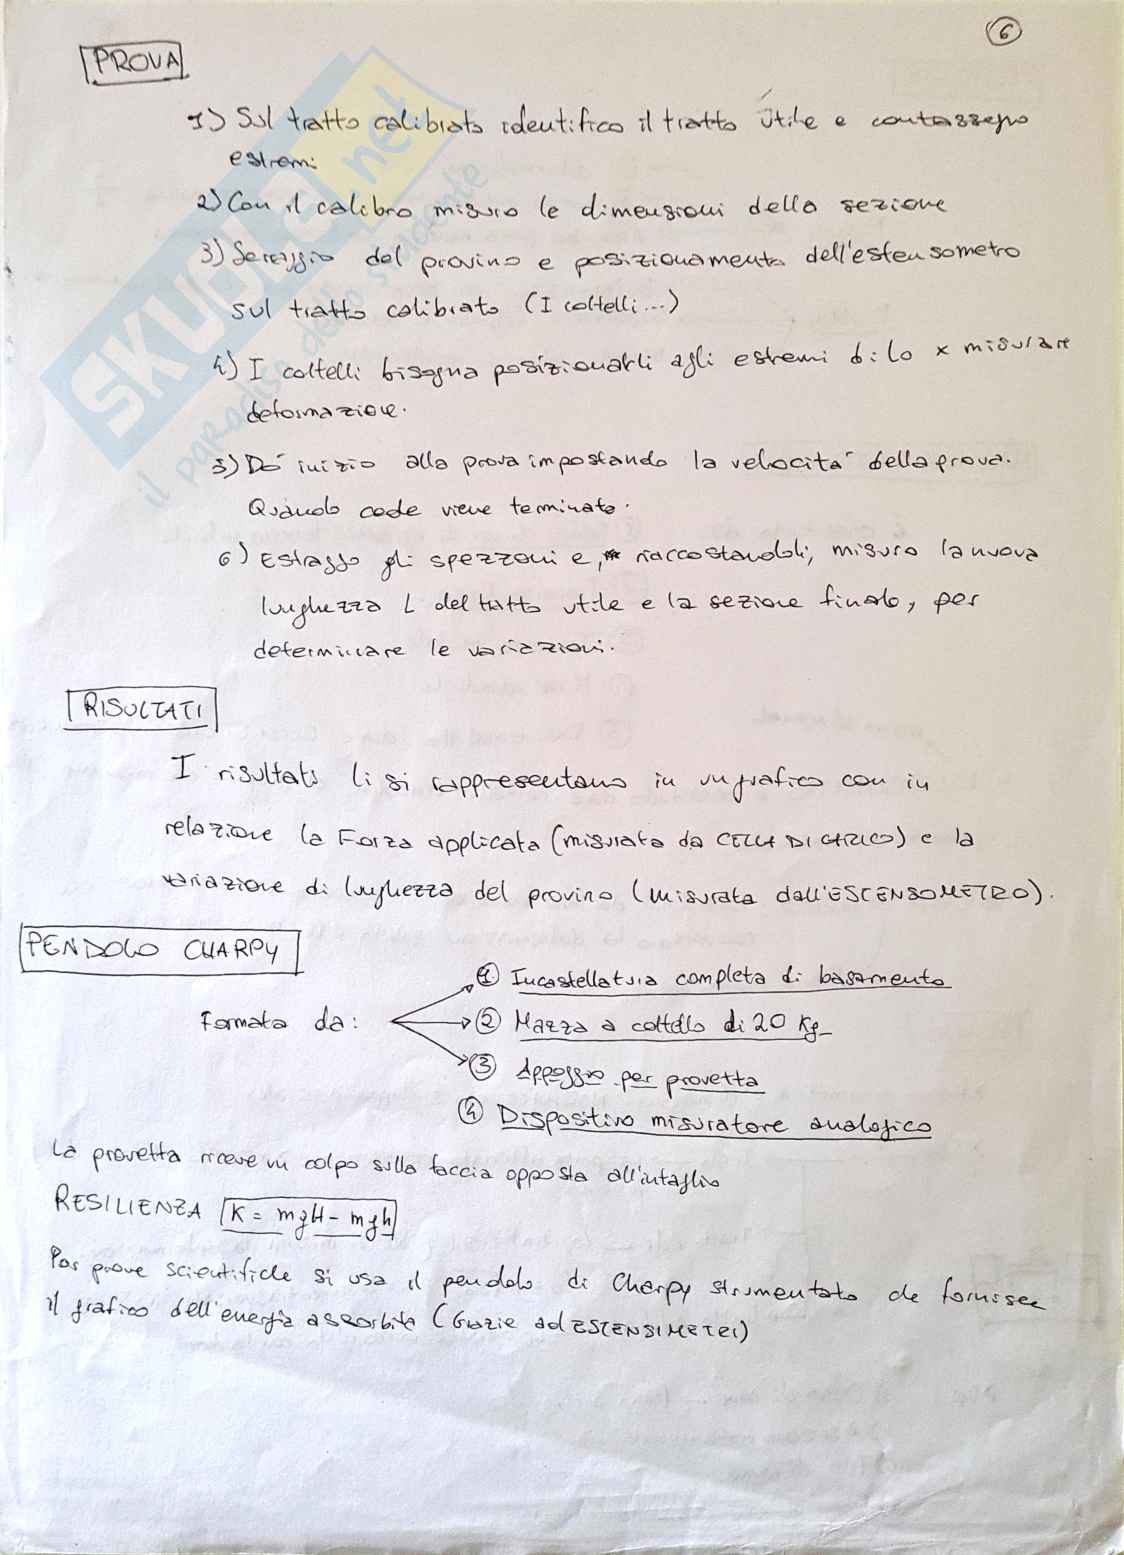 6
PROVA
1) Sul tratto calibrato identifico il tratto utile e contassegno
estremi
2) Con il calibro misuro le dimensioni della sezione
3) Serraggio del provino e posizionamento dell'estensometro
sul tratto calibrato (I coltelli...)
4) I coltelli bisogna posizionarli agli estremi di Lo x misurare
deformazione.
5) Do' inizio alla prova impostando la velocita' della prova.
Quando cede viene terminato.
6) Estraggo gli spezzoni e, raccostandoli, misuro la nuova
lunghezza L del tratto utile e la sezione finale, per
determinare le variazioni.
RISULTATI
I risultati li si rappresentano in un grafico con in
relazione la Forza applicata (misurata da CELLA DI CARICO) e la
variazione di lunghezza del provino (misurata dall'ESTENSOMETRO).
PENDOLO CHARPY
Formato da:
1 Incastellatura completa di basamento
2 Mazza a coltello di 20 Kg
3 Appoggio per provetta
4 Dispositivo misuratore analogico
La provetta riceve un colpo sulla faccia opposta all'intaglio
RESILIENZA K = mgH - mgh
Per prove scientifiche si usa il pendolo di Charpy strumentato che fornisce
il grafico dell'energia assorbita (Grazie ad ESTENSIMETRI)
SKUOLA.net
il paradiso dello studente